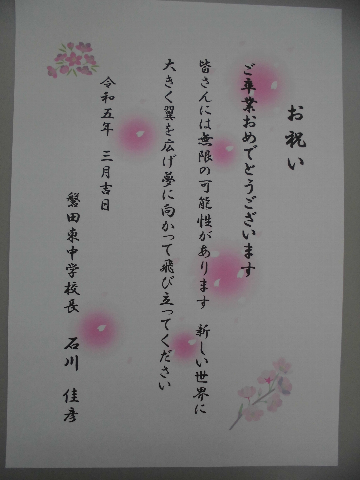 お祝い
ご卒業おめでとうございます
皆さんには無限の可能性があります 新しい世界に
大きく翼を広げ夢に向かって飛び立ってください
令和五年 三月吉日
磐田東中学校長 石川 佳彦